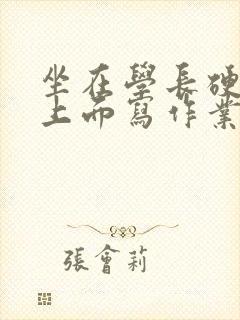 坐在學長硬
上而寫作業
張會莉